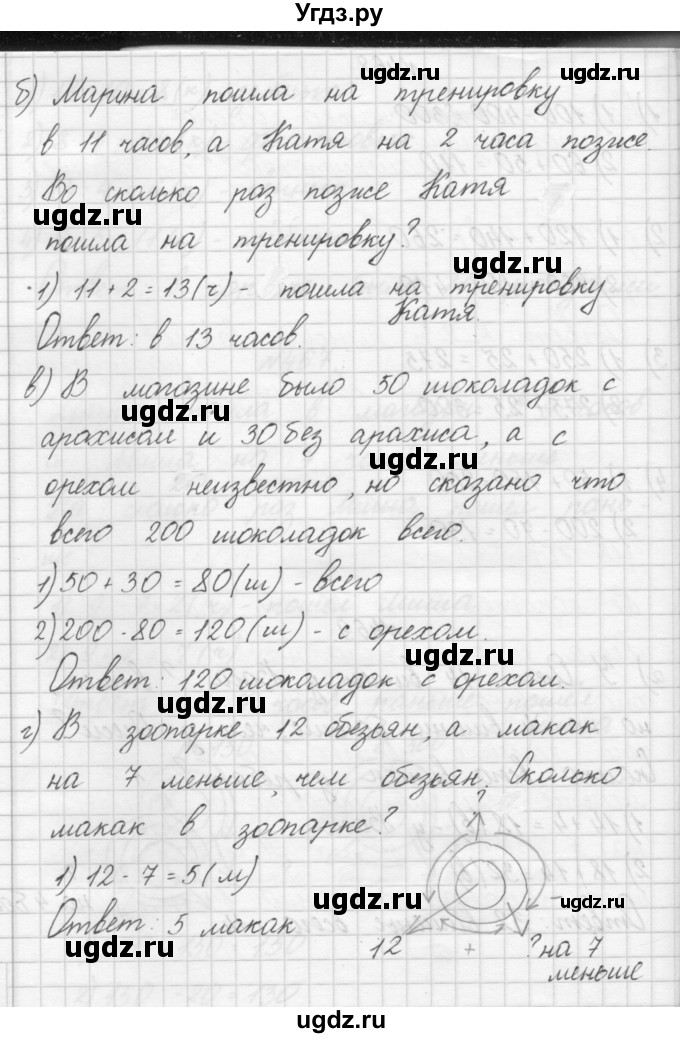 Угдз.ру
б) Марина пошла на тренировку
в 11 часов, а Катя на 2 часа позже.
Во сколько раз позже Катя
ugdz.ru ugdz.ru
пошла на тренировку?
ugdz.ru
1) 11 + 2 = 13 (ч) - пошла на тренировку
Катя.
Ответ: в 13 часов.
в) В магазине было 50 шоколадок с
ugdz.ru
арахисом и 30 без арахиса, а с
ugdz.ru
орехом неизвестно, но сказано что
всего 200 шоколадок всего.
ugdz.ru
1) 50 + 30 = 80 (ш) - всего
2) 200 - 80 = 120 (ш) - с орехом.
ugdz.ru
Ответ: 120 шоколадок с орехом.
ugdz.ru
г) В зоопарке 12 обезьян, а макак
на 7 меньше, чем обезьян. Сколько
?
макак в зоопарке?
1) 12 - 7 = 5 (м)
ugdz.ru ugdz.ru
Ответ: 5 макак
ugdz.ru
12 + ? на 7
меньше
ugdz.ru
ugdz.ru